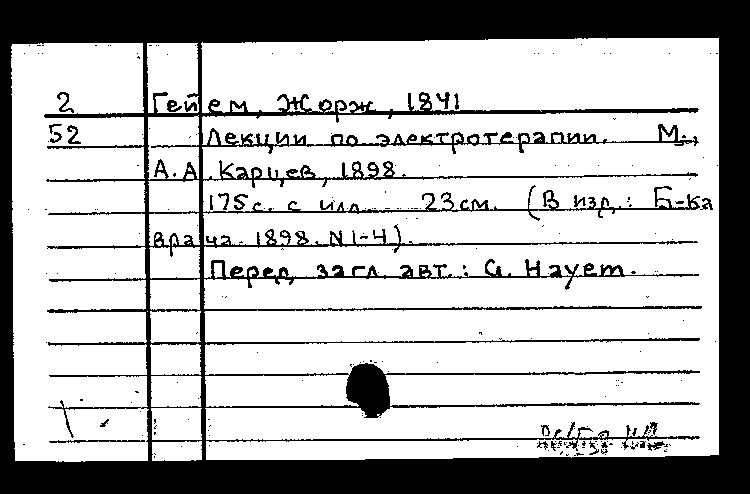 2 Гейем, Жорж, 1841
52 Лекции по электротерапии. М.,
А.А.Карцев, 1898.
175с. с илл. 23см. (В изд.: Б-ка
врача. 1898. N1-4).
Перед загл. авт.: G. Hayem.